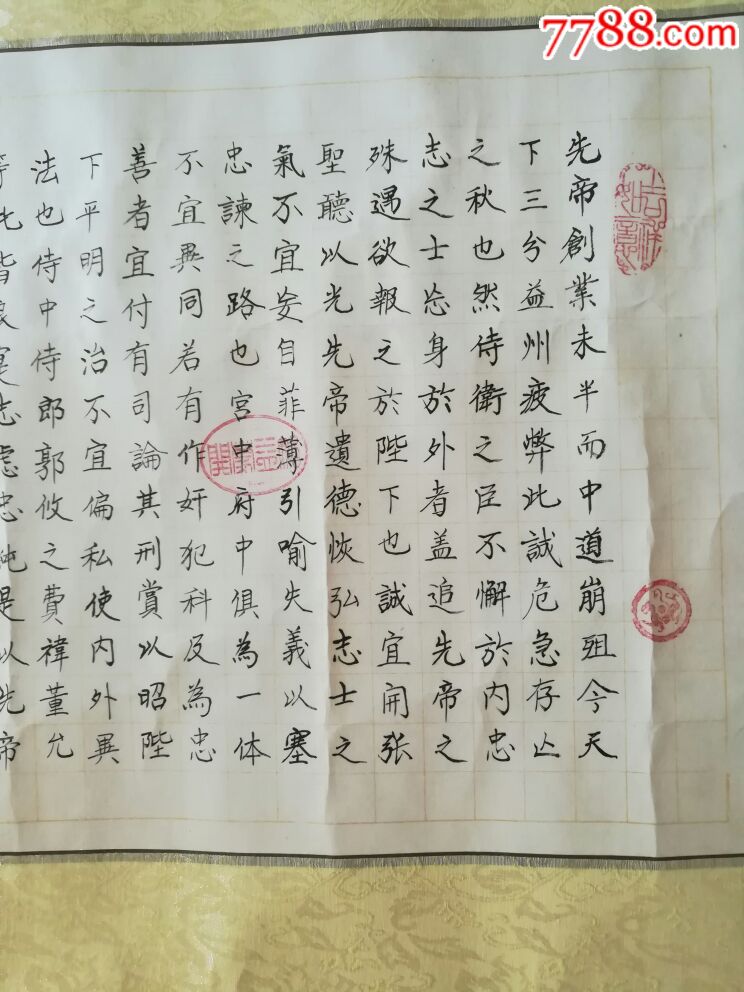 7788.com
吉祥如意
先帝創業未半而中道崩殂今天
下三分益州疲弊此誠危急存亡
之秋也然侍衛之臣不懈於内忠
志之士忘身於外者盖追先帝之
殊遇欲報之於陛下也誠宜開張
聖聽以光先帝遺德恢弘志士之
氣不宜妄自菲薄引喻失義以塞
忠諫之路也宮中府中俱為一体
不宜異同若有作奸犯科及為忠
善者宜付有司論其刑賞以昭陛
下平明之治不宜偏私使内外異
法也侍中侍郎郭攸之費禕董允
等此皆良實志慮忠純是以先帝